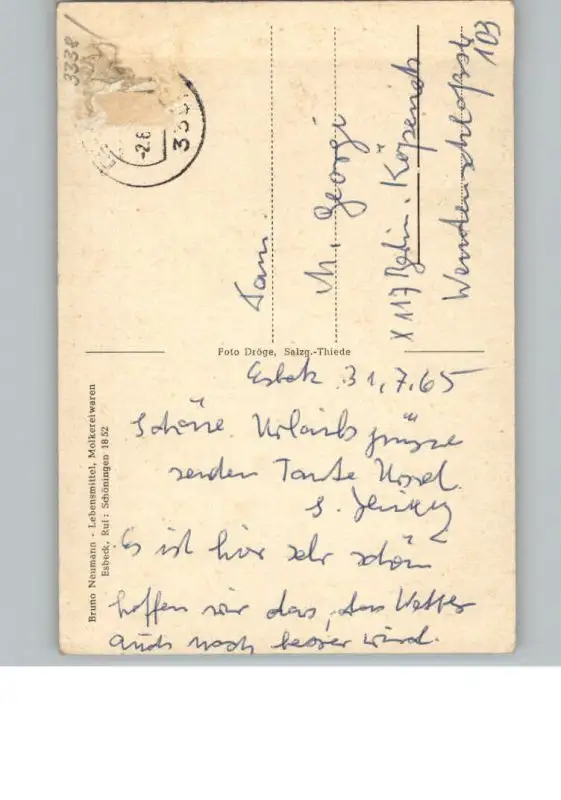 3338
-2.8
33
Fam.
M. Georgi
X 117 Berlin-Köpenick
Wendenschloßstr
103
Foto Dröge, Salzg.-Thiede
Bruno Neumann - Lebensmittel, Molkereiwaren
Esbeck, Ruf: Schöningen 18 52
Esbek 31.7.65
Schöne Urlaubsgrüsse
senden Tante Ursel
Es ist hier sehr schön
hoffen wir das, das Wetter
auch noch besser wird.